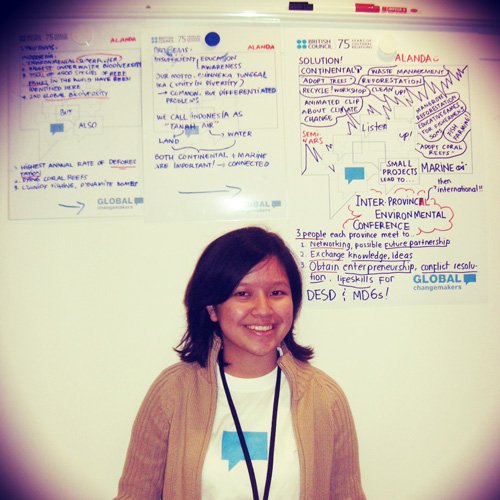 BRITISH COUNCIL
ALANDA
ENVIRONMENTAL
BIGGEST UNDERWATER BIODIVERSITY
REEF
FISHES IN THE WORLD HAVE BEEN
IDENTIFIED HERE
2ND GLOBAL BIODIVERSITY
BUT
ALSO
HIGHEST ANNUAL RATE OF DEFORES
TATION
CORAL REEFS
DYNAMITE
GLOBAL
changemakers
BRITISH COUNCIL
75 YEARS OF CULTURAL RELATIONS
ALANDA
PROBLEMS:
INSUFFICIENT EDUCATION
AWARENESS
OUR MOTTO: BHINNEKA TUNGGAL
IKA (UNITY IN DIVERSITY)
→ COMMON BUT DIFFERENTIATED
PROBLEMS
WE CALL INDONESIA AS
"TANAH AIR"
LAND WATER
BOTH CONTINENTAL + MARINE
ARE IMPORTANT! → CONNECTED
GLOBAL
changemakers
BRITISH COUNCIL
75 YEARS OF CULTURAL RELATIONS
SOLUTION!
ALANDA
CONTINENTAL
WASTE MANAGEMENT
ADOPT TREES
REFORESTATION
RECYCLE! WORKSHOP
CLEAN UP!
ANIMATED CLIP
ABOUT CLIMATE
CHANGE
Listen up!
SEMI-
NARS
MANGROVE
REFORESTATION
EDUCATIVE GAMES
FOR FISHERMEN'S
SONS
FISH
FARMING!
-ADOPT CORAL
REEFS-
MARINE
SMALL
PROJECTS
LEAD TO...
then
"international!!"
INTER-PROVINCIAL
ENVIRONMENTAL
CONFERENCE
3 people each province meet to...
1. Networking, possible future partnership
2. Exchange knowledge, ideas
3. Obtain enterpreneurship, conflict resolu-
tion, lifeskills FOR
DESD & MDGs!
GLOBAL
changemakers